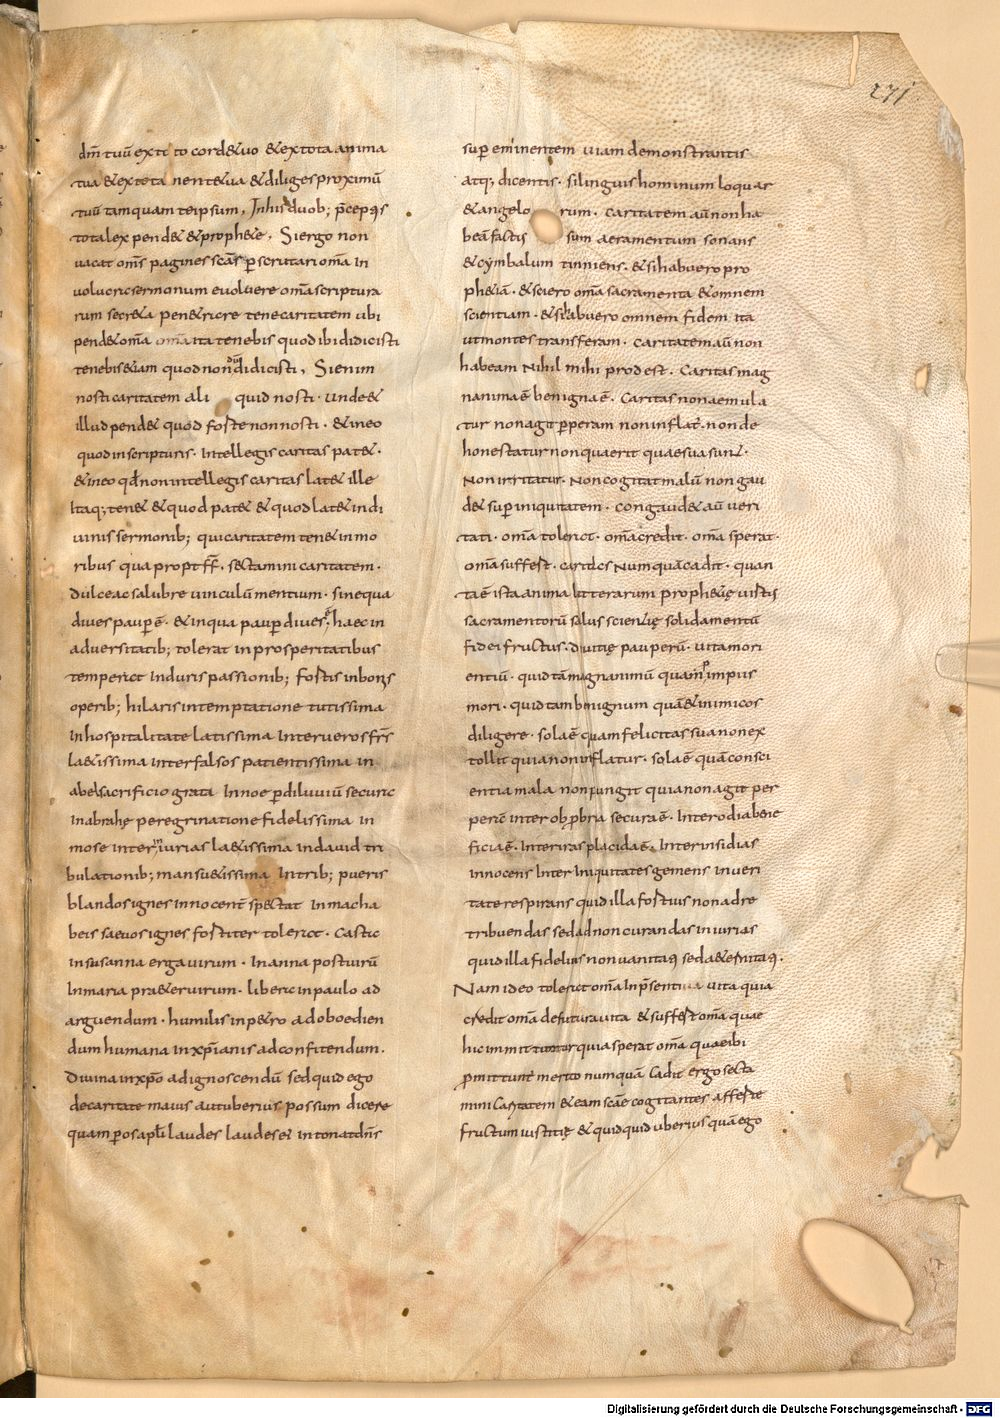 271
dm̄ tuū ex to to corde tuo & ex tota anima
tua & ex tota mente tua & diliges proximū
tuū tamquam teipsum, In his duob; p̄ceptis
tota lex pend& & prophete. Si ergo non
uacat om̄s paginas scās perscrutari om̄a in
uolucra sermonum euoluere om̄a scriptura
rum secreta penetrare tene caritatem ubi
pendent om̄a ita tenebis quod ibi didicisti
tenebis etiam quod nondū didicisti, Si enim
nosti caritatem ali quid nosti. unde &
illud pend& quod forte non nosti. & in eo
quod in scripturis. Intellegis caritas pat&.
& in eo qđ non intellegis caritas lat& ille
Itaq; ten& & quod pat& & quod lat& in di
uinis sermonib; qui caritatem ten& in mo
ribus qua propt̄ ff̄. sectamini caritatem.
dulce ac salubre uinculū mentium. sine qua
diues pauper ē. & in qua pauper diues ē, haec in
aduersitatib; tolerat in prosperitatibus
temperat In duris passionib; fortis in bonis
operib; hilaris in temptatione tutissima
In hospitalitate latissima Inter ueros fr̄s
l&issima inter falsos patientissima in
abel sacrificio grata In noe per diluuiū secura
In abrahę peregrinatione fidelissima in
mose inter iniurias lenissima In dauid tri
bulationib; mansu&issima In trib; pueris
blandos ignes innocenter spectat In macha
beis saeuos ignes fortiter tolerat. Casta
in susanna erga uirum. In anna post uirū
In maria praeter uirum. libera in paulo ad
arguendum. humilis in petro ad oboedien
dum humana In xp̄ianis ad confitendum.
Diuina in xp̄o ad ignoscendū sed quid ego
de caritate maius aut uberius possum dicere
quam per os apłi laudes laudes ei intonat dn̄s
super eminentem uiam demonstrantis
atq; dicentis. si linguis hominum loquar
& angelo rum. Caritatem aū non ha
beā factis sum aeramentum sonans
& cymbalum tinniens. & si habuero pro
ph&iā. & sciero om̄a sacramenta & omnem
scientiam. & si habuero omnem fidem ita
ut montes transferam. Caritatem aū non
habeam Nihil mihi prodest. Caritas mag
nanima ē benigna ē. Caritas non aemula
tur non agit perperam non inflat̄. non de
honestatur non quaerit quae sua sunt.
Non irritatur. Non cogitat malū non gau
d& super iniquitatem. Congaud& aū ueri
tati. om̄a tolerat. om̄a credit. om̄a sperat.
om̄a suffert. caritas Numquā cadit. quan
ta ē ista anima litterarum proph&ię uirtus
sacramentorū salus scientię solidamentū
fidei fructus. diuitię pauperū. uita mori
entiū. quid tā magnanimū quam pro impiis
mori. quid tam benignum quā & inimicos
diligere. sola ē quam felicitas sua non ex
tollit quia non inflatur. sola ē quā consci
entia mala non pungit quia non agit per
perā ē inter obprobria secura ē. Inter odia bene
fica ē. Inter iras placida ē. Inter insidias
innocens Inter Iniquitates gemens in ueri
tate respirans quid illa fortius non ad re
tribuendas sed ad non curandas iniurias
quid illa fidelius non uanitati sed aeternitati.
Nam ideo tolerat om̄a In p̄senti uita quia
credit om̄a de futura uita & suffert om̄a quae
hic immittuntur quia sperat om̄a quae ibi
promittunt̄ merito numquā Cadit ergo secta
mini Caritatem & eam scāe cogitantes afferte
fructum iustitię & quidquid uberius quā ego
Digitalisierung gefördert durch die Deutsche Forschungsgemeinschaft - DFG